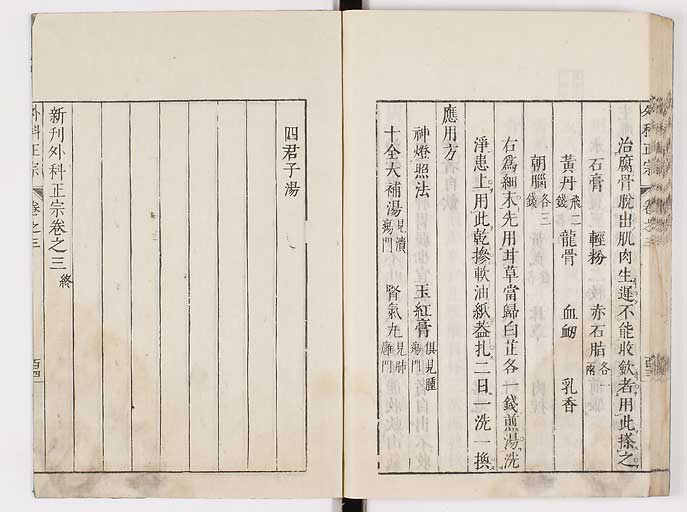 外科正宗
治腐骨脫出肌肉生遲不能收歛者用此搽之
石膏 輕粉 赤石脂各一兩
黃丹飛二錢 龍骨 血竭 乳香
朝腦各三錢
右爲細末先用甘草當歸白芷各一錢煎湯洗
淨患上用此乾摻軟油紙葢扎二日一洗一換
應用方
神燈照法 玉紅膏俱見腫瘍門
十全大補湯見潰瘍門 腎氣丸見肺癰門
四君子湯
新刋外科正宗卷之三終
外科正宗 卷之三